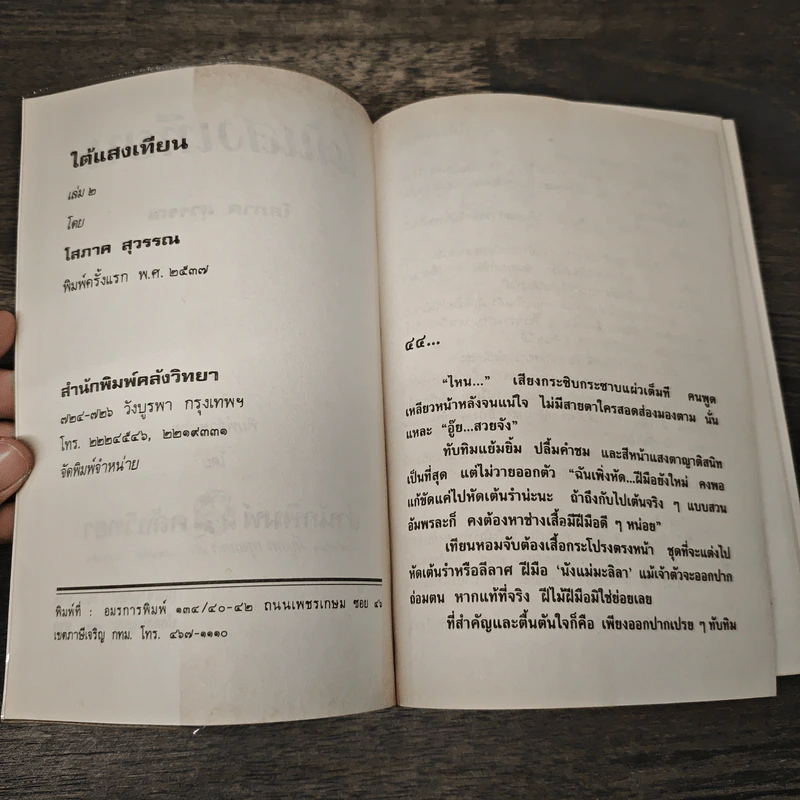 ใต้แสงเทียน
เล่ม ๒
โดย
โสภาค สุวรรณ
พิมพ์ครั้งแรก พ.ศ. ๒๕๓๗
สำนักพิมพ์คลังวิทยา
๗๒๔-๗๒๖ วังบูรพา กรุงเทพฯ
โทร. ๒๒๒๔๕๔๖, ๒๒๑๙๓๓๑
จัดพิมพ์จำหน่าย
พิมพ์ที่ : อมรการพิมพ์ ๑๓๔/๔๐-๔๒ ถนนเพชรเกษม ซอย ๔๖
เขตภาษีเจริญ กทม. โทร. ๔๖๗-๑๑๑๐
๔๔...
“ไหน...” เสียงกระซิบกระซาบแผ่วเต็มที คนพูด
เหลียวหน้าหลังจนแน่ใจ ไม่มีสายตาใครสอดส่องมองตาม นั่น
แหละ “อู๊ย...สวยจัง”
ทับทิมแย้มยิ้ม ปลื้มคำชม และสีหน้าแสงตาญาติสนิท
เป็นที่สุด แต่ไม่วายออกตัว “ฉันเพิ่งหัด...ฝีมือยังใหม่ คงพอ
แก้ขัดแค่ไปหัดเต้นรำน่ะนะ ถ้าถึงกับไปเต้นจริง ๆ แบบสวน
อัมพรละก็ คงต้องหาช่างเสื้อมีฝีมือดี ๆ หน่อย”
เทียนหอมจับต้องเสื้อกระโปรงตรงหน้า ชุดที่จะแต่งไป
หัดเต้นรำหรือลีลาศ ฝีมือ ‘นังแม่มะลิลา’ แม้เจ้าตัวจะออกปาก
ถ่อมตน หากแท้ที่จริง ฝีไม้ฝีมือมิใช่ย่อยเลย
ที่สำคัญและตื้นตันใจก็คือ เพียงออกปากเปรย ๆ ทับทิม